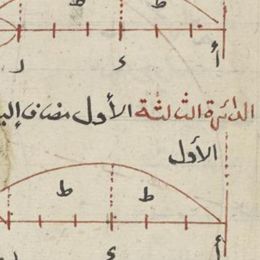 ط ط
أ ء ر
الدائرة الثالثة الأول مضاف إلى
الأول
ط ط
أ ء